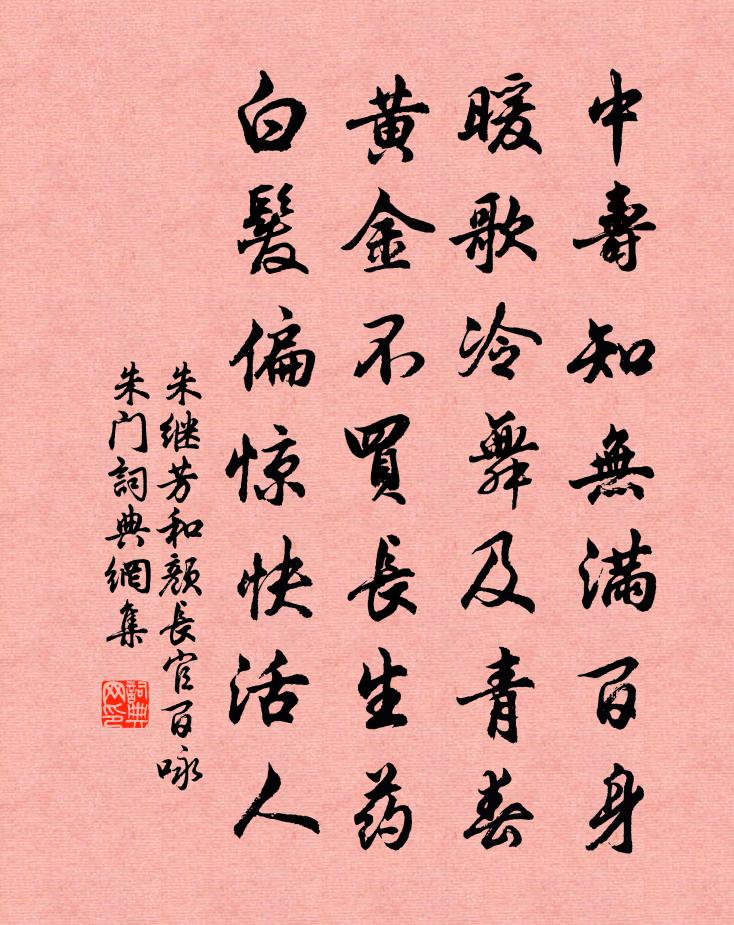 中壽知無滿百身
暖歌冷舞及青春
黃金不買長生药
白髮偏惊快活人
朱继芳和颜長官百咏
朱门詞典網集
詞典网印